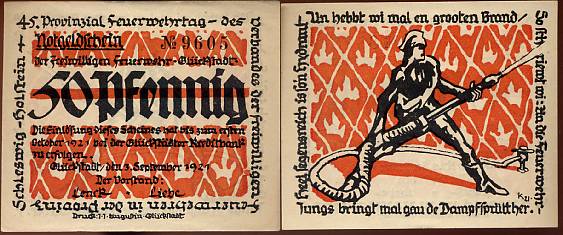 45. Provinzial Feuerwehrtag – des
Verbandes der Freiwilligen
Feuerwehren in der Provinz
Schleswig-Holstein +
Notgeldschein № 9605
der Freiwilligen Feuerwehr-Glückstadt
50 Pfennig
Die Einlösung dieses Scheines hat bis zum ersten
October 1921 bei der Glückstädter Kreditbank
zu erfolgen.
Glückstadt, den 3. September 1921
Der Vorstand:
Lenck. Liebe
Druck: J. J. Augustin-Glückstadt
Un hebbt wi mal en grooten Brand/
So
wi: Un de Feuerwehr
Jungs bringt mal gau de Dampfsprütt her.
is son Hydrant